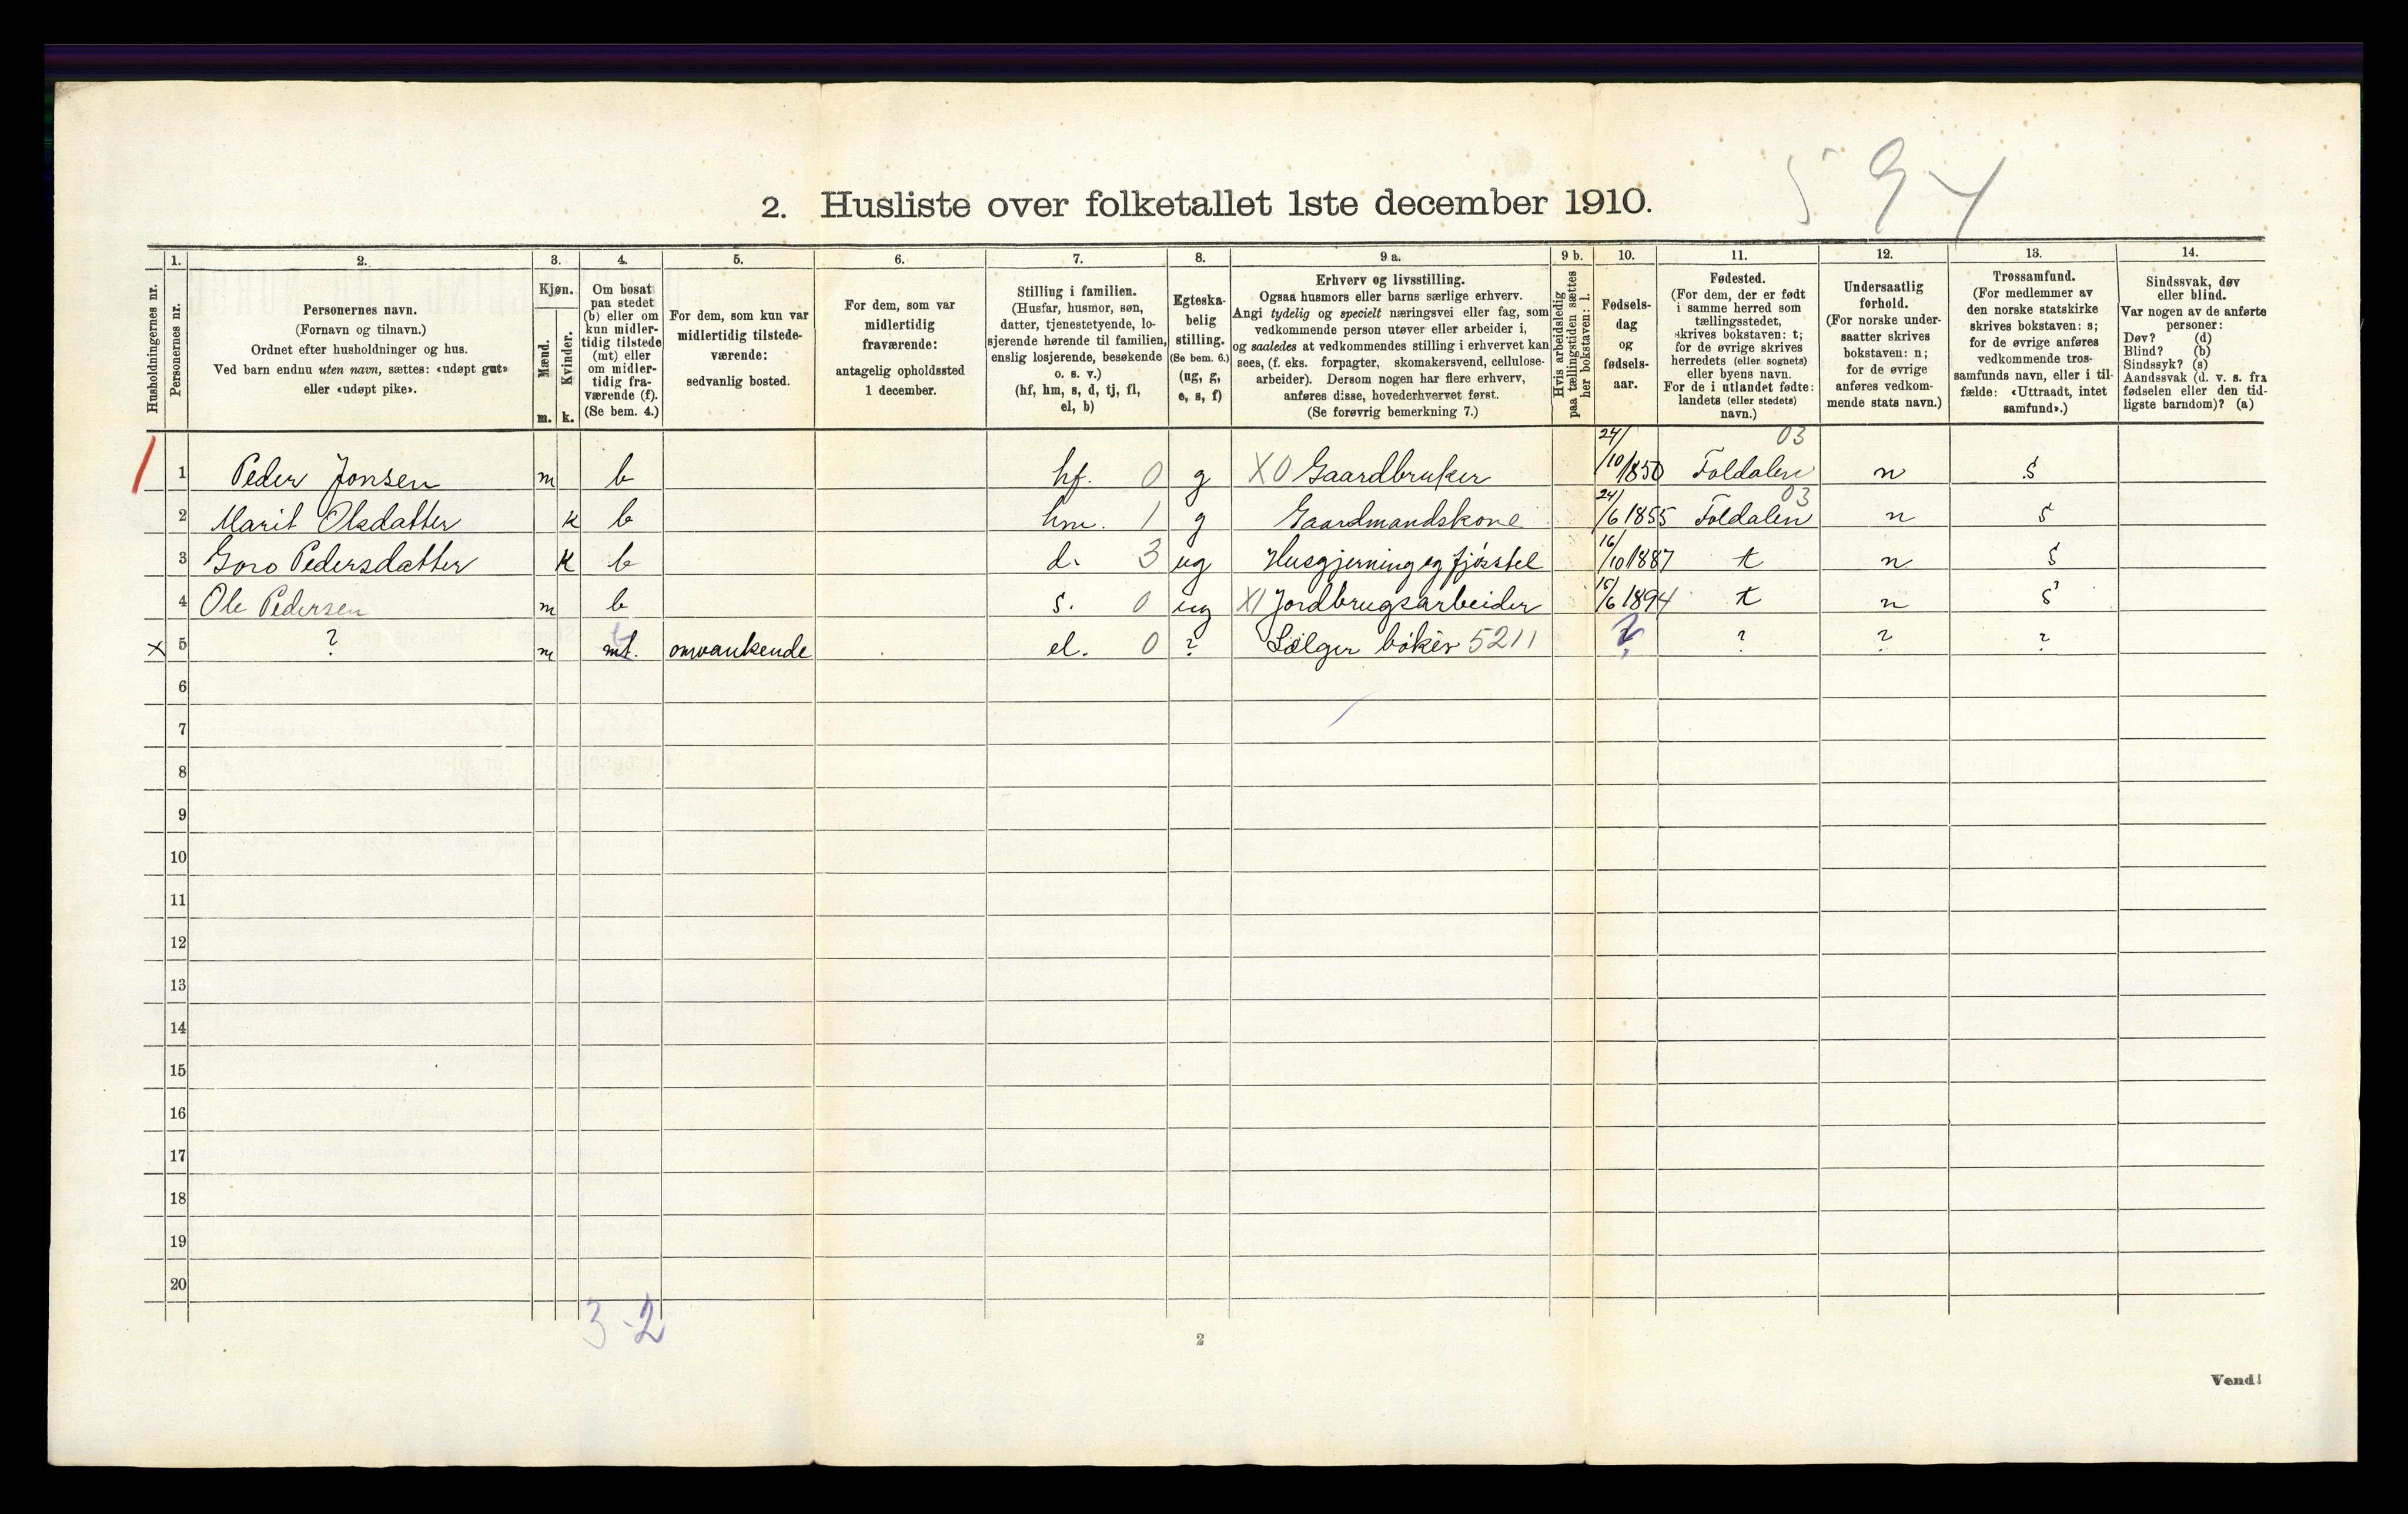 594
2. Husliste over folketallet 1ste december 1910.
Husholdningernes nr.
1. Personernes nr.
2. Personernes navn. (Fornavn og tilnavn.) Ordnet efter husholdninger og hus. Ved barn endnu uten navn, sættes: «udøpt gut» eller «udøpt pike».
3. Kjøn. Mænd. m. Kvinder. k.
4. Om bosat paa stedet (b) eller om kun midlertidig tilstede (mt) eller om midlertidig fraværende (f). (Se bem. 4.)
5. For dem, som kun var midlertidig tilstedeværende: sedvanlig bosted.
6. For dem, som var midlertidig fraværende: antagelig opholdssted 1 december.
7. Stilling i familien. (Husfar, husmor, søn, datter, tjenestetyende, losjerende hørende til familien, enslig losjerende, besøkende o. s. v.) (hf, hm, s, d, tj, fl, el, b)
8. Egteskabelig stilling. (Se bem. 6.) (ug, g, e, s, f)
9 a. Erhverv og livsstilling. Ogsaa husmors eller barns særlige erhverv. Angi tydelig og specielt næringsvei eller fag, som vedkommende person utøver eller arbeider i, og saaledes at vedkommendes stilling i erhvervet kan sees, (f. eks. forpagter, skomakersvend, cellulosearbeider). Dersom nogen har flere erhverv, anføres disse, hovederhvervet først. (Se forøvrig bemerkning 7.)
9 b. Hvis arbeidsledig paa tællingstiden sættes her bokstaven: l.
10. Fødselsdag og fødselsaar.
11. Fødested. (For dem, der er født i samme herred som tællingsstedet, skrives bokstaven: t; for de øvrige skrives herredets (eller sognets) eller byens navn. For de i utlandet fødte: landets (eller stedets) navn.)
12. Undersaatlig forhold. (For norske undersaatter skrives bokstaven: n; for de øvrige anføres vedkommende stats navn.)
13. Trossamfund. (For medlemmer av den norske statskirke skrives bokstaven: s; for de øvrige anføres vedkommende trossamfunds navn, eller i tilfælde: «Uttraadt, intet samfund».)
14. Sindssvak, døv eller blind. Var nogen av de anførte personer: Døv? (d) Blind? (b) Sindssyk? (s) Aandssvak (d. v. s. fra fødselen eller den tidligste barndom)? (a)
1 1 Peder Jonsen m b hf. 0 g X0 Gaardbruker 24/10 1850 Foldalen 03 n s
2 Marit Olsdatter k b hm. 1 g Gaardmandskone 24/6 1855 Foldalen 03 n s
3 Goro Pedersdatter k b d. 3 ug Husgjerning og fjøsstel 16/10 1887 t n s
4 Ole Pedersen m b s. 0 ug X1 Jordbrugsarbeider 15/6 1894 t n s
x 5 ? m mt. b omvankende el. 0 ? Sælger bøker 5211 ? ? ? ?
6
7
8
9
10
11
12
13
14
15
16
17
18
19
20
3-2
2
Vend!